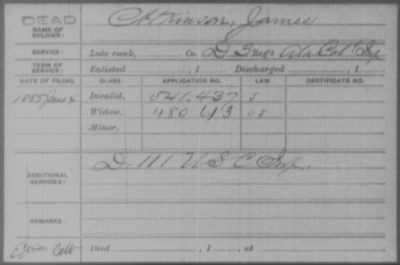 DEAD
NAME OF SOLDIER:
Atkinson, James
SERVICE:
Late rank, Co. D, 3 Reg't Ala Col'd Inf
TERM OF SERVICE:
Enlisted , 1 Discharged , 1
DATE OF FILING. CLASS. APPLICATION NO. LAW. CERTIFICATE NO.
1885 June 4 Invalid, 541.437
Widow, 480
Minor,
ADDITIONAL SERVICES:
D. 111 U S C Inf.
REMARKS:
Died , 1 , at